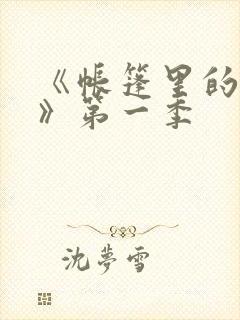 《帐篷里的
》第一季
沈夢雪